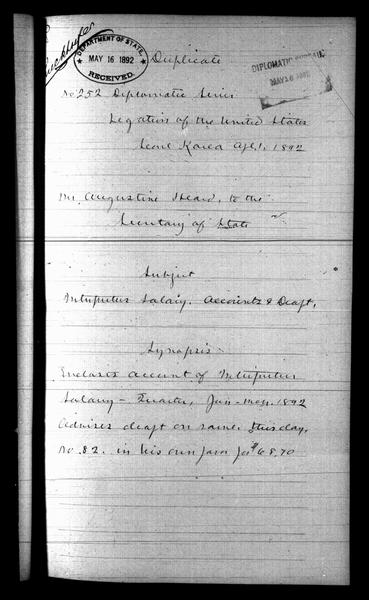 DEPARTMENT OF STATE,
MAY 16 1892
RECEIVED.
Duplicate
DIPLOMATIC BUREAU
MAY 16 1892
No 252 Diplomatic Series
Legation of the United States
Seoul Korea Apl 1, 1892
Mr. Augustine Heard, to the
Secretary of State
Subject
Interpreters Salary. Accounts & Draft.
Synopsis
Encloses account of Interpreters
Salary - Quarter, Jan - Mch. 1892
Advises draft on same, this day,
No. 82. in his own favor for $68.70